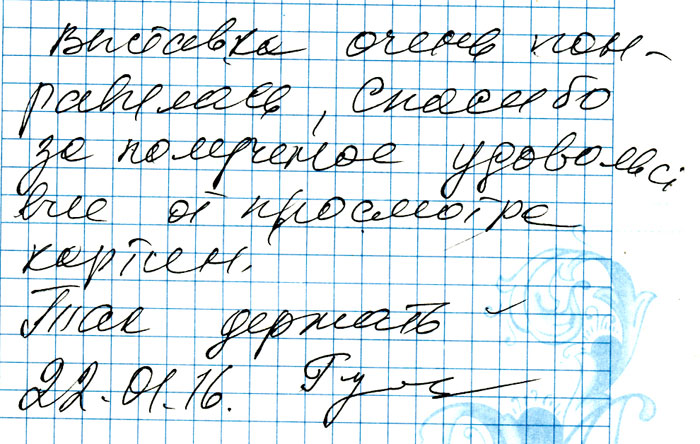 Выставка очень пон-
равилась, Спасибо
за полученое удовольст
вие от просмотра
картин.
Так держать
22.01.16.